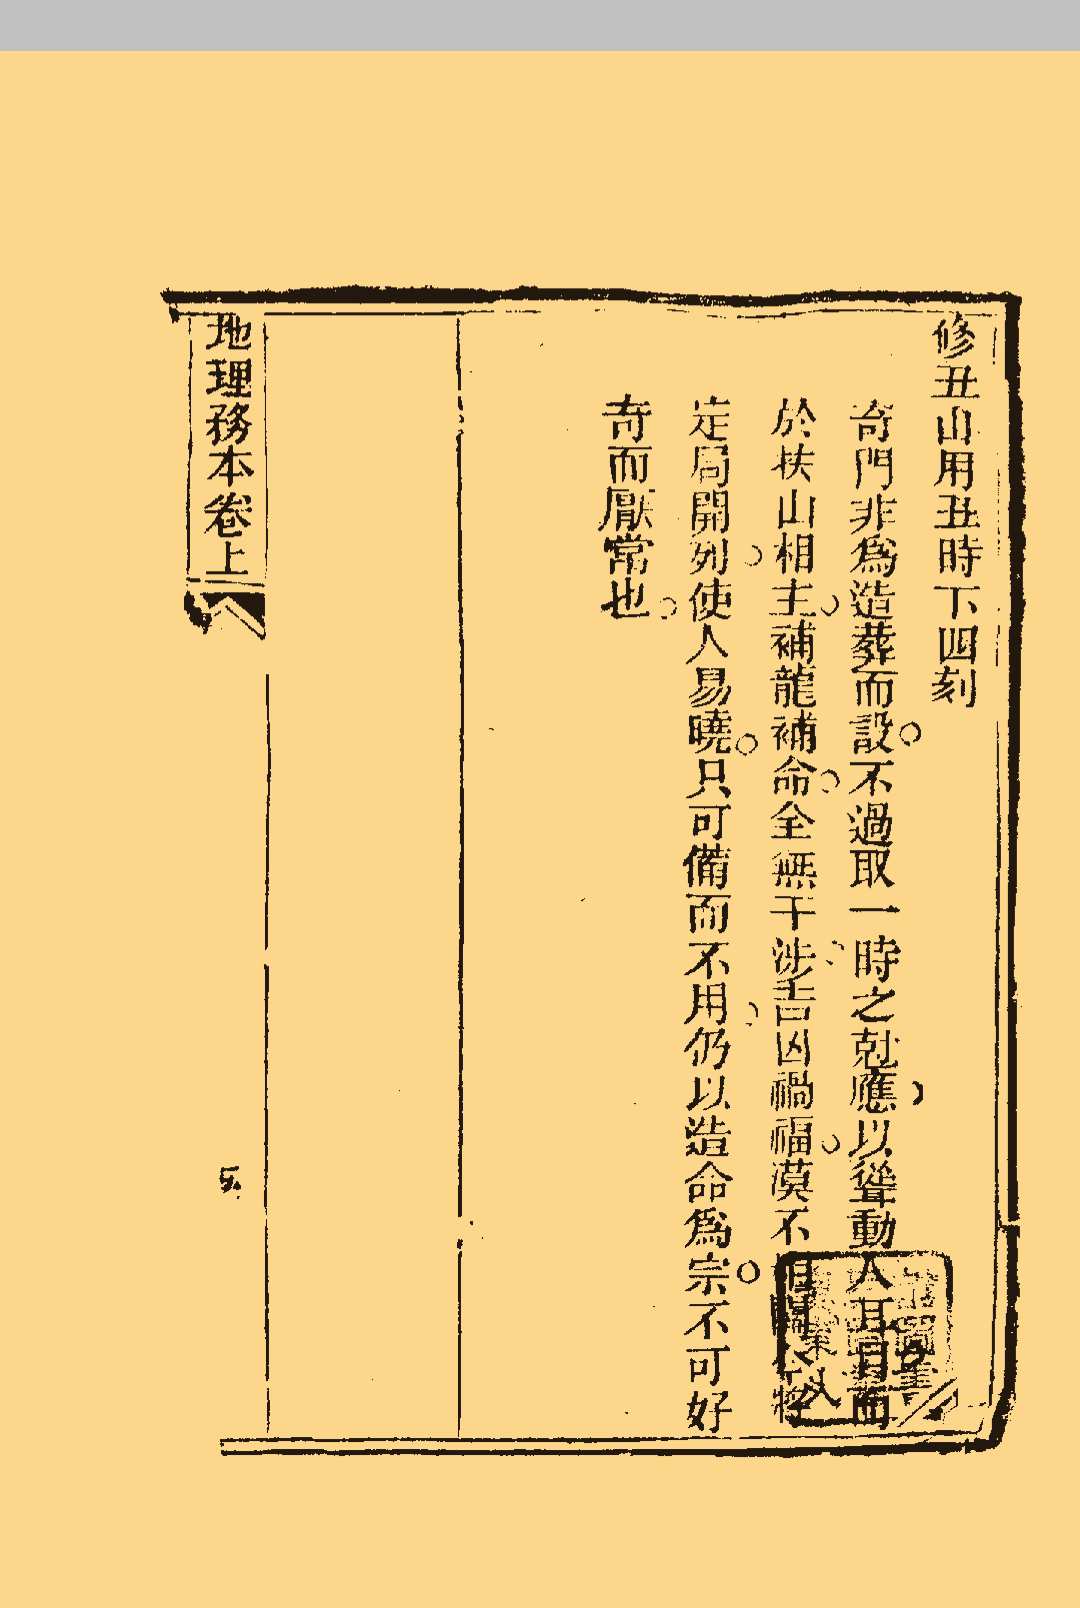 修丑山用丑時下四刻
奇門非爲造葬而設不過取一時之尅應以聳動人耳目而
於扶山相主補龍補命全無干涉吉凶禍福漠不相關今將
定局開列使人易曉只可備而不用仍以造命爲宗不可好
奇而厭常也
地理務本卷上